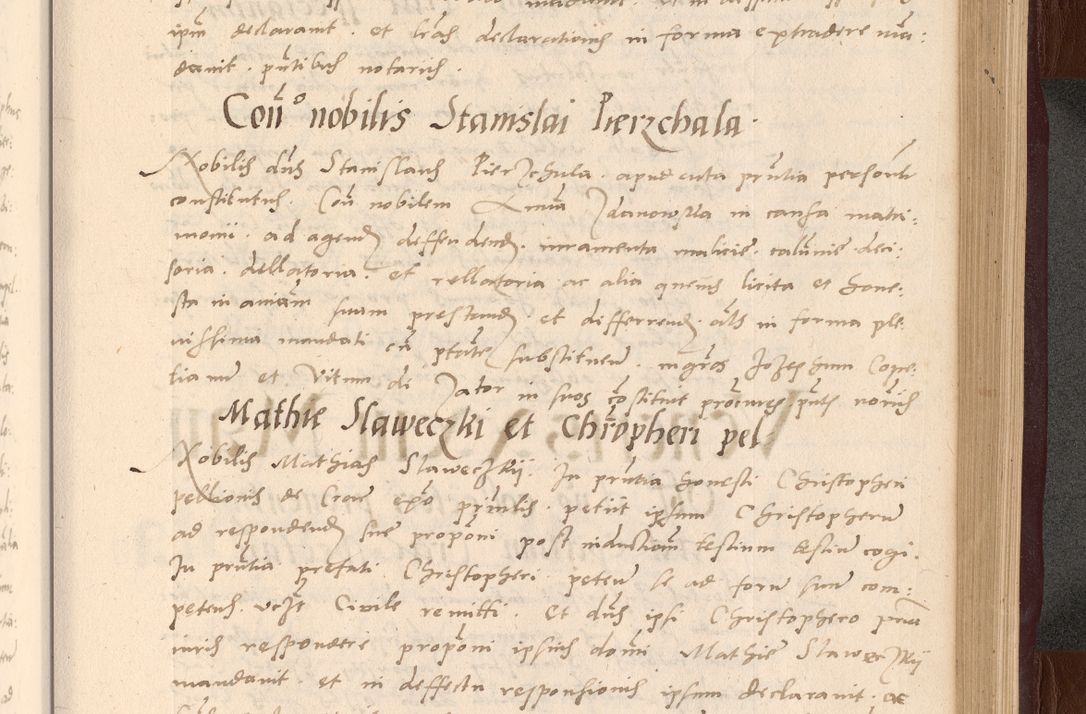 ipm declaravit . et lras declarationis in forma extradere man:
davit . pntibus notariis .
Con̄o nobilis Stanislai Pierzchala .
Nobilis dns Stanislaus Pierzchala . apud acta pñtia personlr
constitutus . Con nobilem Annā Zdanowska in causa matri:
monii . ad agend deffendend . iuramenta malicie . calūnie . deci:
soria . dellatoria . et rellatoria ac alia quevis licita et hone:
sta in aniam suam prestand et differrend . als in forma ple:
nissima mandati cū ptāte substituen . mgros Jozephum Cope:
tianū et Vitum de Zator in suos cōstituit procures pnts noriis
Mathie Slaweczki et Chrōpheri pel
Nobilis Mathias Slaweczkij In pñtia honesti Christopheri
pellionis de Crac expō principlis . petiit ipsum Christopherū
ad respondend sue proponi post inductiom testium testiū cogi .
In pñtia prefati Christopheri . peteñ se ad forū suū com:
petens . uczt Civile remitti . Et dns ipsi Christophero
iuris respondere proponi ipsius domi Mathie Slaweczkij
mandavit . et in deffectu responsionis ipsum declaravit . ac